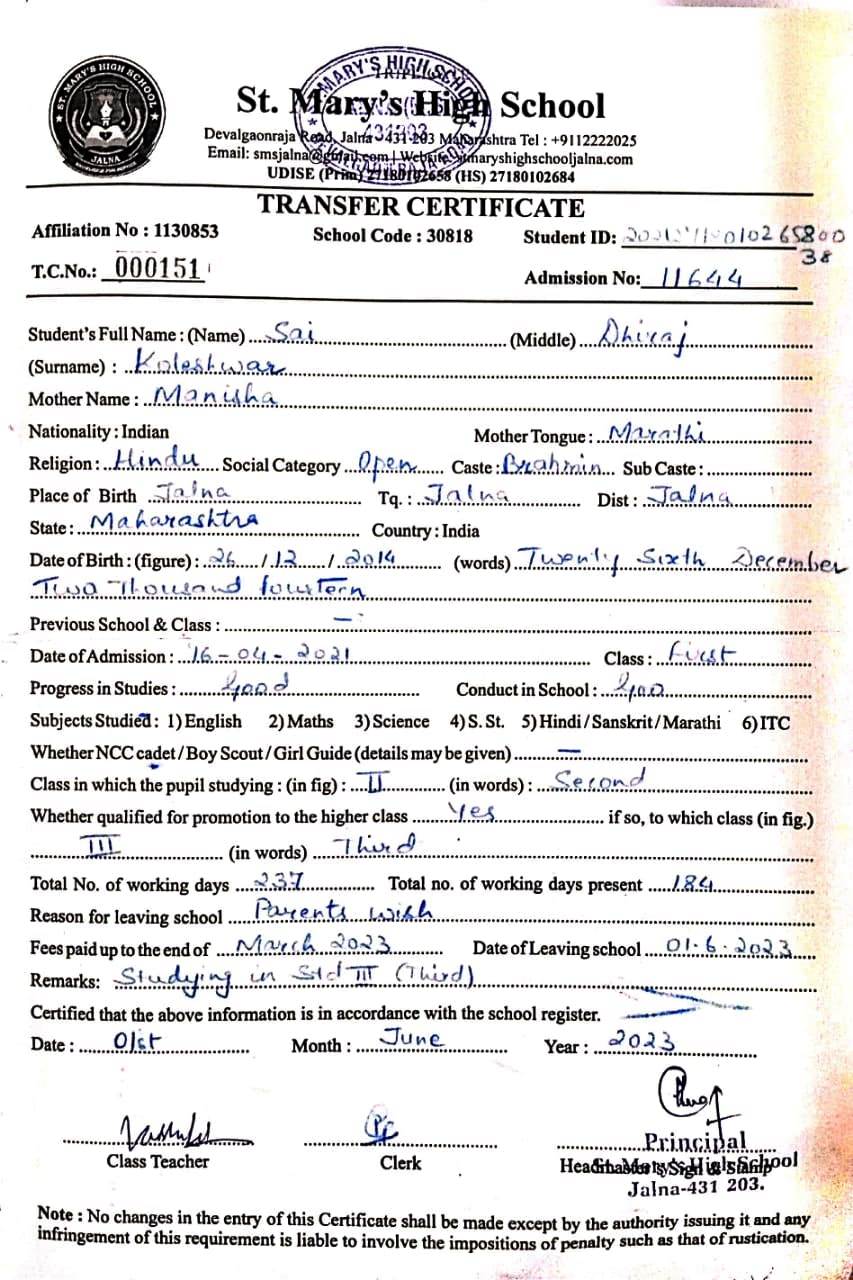 ST. MARY'S HIGH SCHOOL
JALNA
MARY'S HIGH SCHOOL
St. Mary's High School
Devalgaonraja Road, Jalna - 431 203 Maharashtra Tel : +9112222025
Email: smsjalna@gmail.com | Website: stmaryshighschooljalna.com
UDISE (Prim) 27180102658 (HS) 27180102684
TRANSFER CERTIFICATE
Affiliation No : 1130853 School Code : 30818 Student ID:
38
T.C.No.: 000151 Admission No: 11644
Student's Full Name : (Name) Sai (Middle) Dhiraj
(Surname) : Koleshwar
Mother Name : Manisha
Nationality : Indian Mother Tongue : Marathi
Religion : Hindu Social Category Open Caste : Brahmin Sub Caste :
Place of Birth Jalna Tq. : Jalna Dist : Jalna
State : Maharashtra Country : India
Date of Birth : (figure) : 26 / 12 / 2014 (words) Twenty Sixth December
Two Thousand fourteen
Previous School & Class : —
Date of Admission : 16-04-2021 Class : First
Progress in Studies : Good Conduct in School : Goo
Subjects Studied : 1) English 2) Maths 3) Science 4) S. St. 5) Hindi / Sanskrit / Marathi 6) ITC
Whether NCC cadet / Boy Scout / Girl Guide (details may be given) —
Class in which the pupil studying : (in fig) : II (in words) : Second
Whether qualified for promotion to the higher class Yes if so, to which class (in fig.)
III (in words) Third
Total No. of working days 237 Total no. of working days present 184
Reason for leaving school Parents wish
Fees paid up to the end of March 2023 Date of Leaving school 01.6.2023
Remarks: Studying in Std III (Third)
Certified that the above information is in accordance with the school register.
Date : 01st Month : June Year : 2023
Principal
Class Teacher Clerk Headmaster's Sign & Stamp
St. Mary's High School
Jalna-431 203.
Note : No changes in the entry of this Certificate shall be made except by the authority issuing it and any
infringement of this requirement is liable to involve the impositions of penalty such as that of rustication.